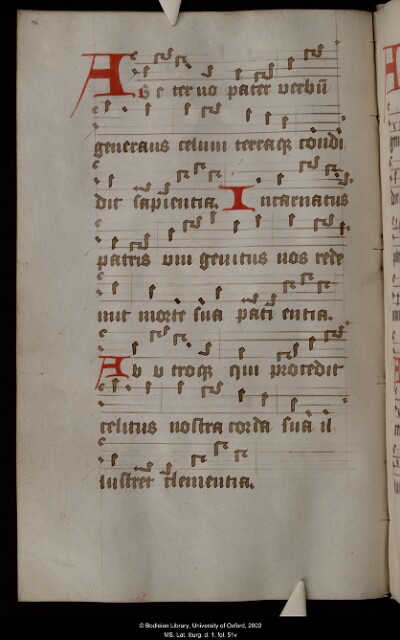 Ab e ter no pater verbū
generans celum terraqꝫ condi
dit sapientia. Incarnatus
patris vni genitus nos rede
mit morte sua pati entia.
Ab v troqꝫ qui procedit
celitus nostra corda sua il
lustret clementia.
© Bodleian Library, University of Oxford, 2003
MS. Lat. liturg. d. 1, fol. 51v